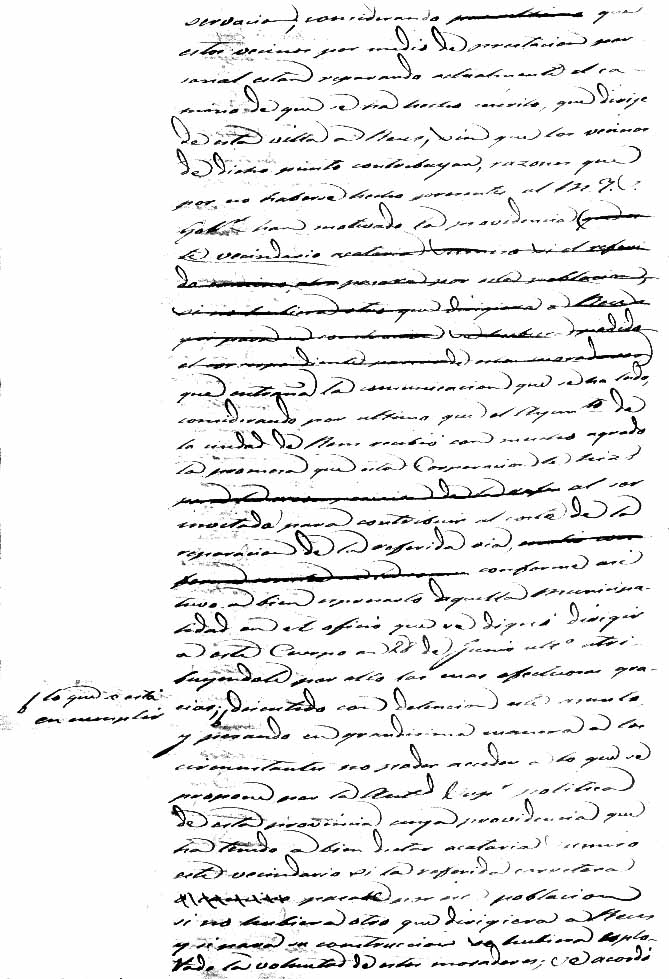 servacion, considerando que
estos vecinos por medio de prestacion per
sonal estan reparando actualmente el ca-
mino de que se ha hecho mérito, que dirije
de esta villa a Reus, sin que los vecinos
de dicho punto contribuyan, razones que
por no haberse hecho presentes al M. Y. S.
Gobr. han motivado la providencia
el vecindario
si no hubiera otro que dirigiera a Reus
que entraña la comunicacion que se ha leido,
considerando por ultimo que el Ayunto. de
la ciudad de Reus recibió con mucho agrado
la promesa que esta Corporacion le hizo
al ser
invitada para contribuir al coste de la
reparacion de la referida via,
conforme asi
tuvo a bien espresarlo aquella Municipa-
lidad en el oficio que se dignó dirigir
a este Cuerpo en 28 de Junio ulto. atri
buyendole por ello las mas efectuosas gra-
lo que está
en cumplir
cias; discutido con detencion este asunto
y pesando en grandisima manera a los
circunstantes no poder acceder a lo que se
propone por la Autd. Supr. politica
de esta provincia cuya providencia que
ha tenido a bien dictar acataria sumiso
este vecindario si la referida carretera
pasase por esta poblacion
si no hubiera otro que dirigiera a Reus
y si para su construccion se hubiera esplo-
rado la voluntad de estos moradores; se acordó